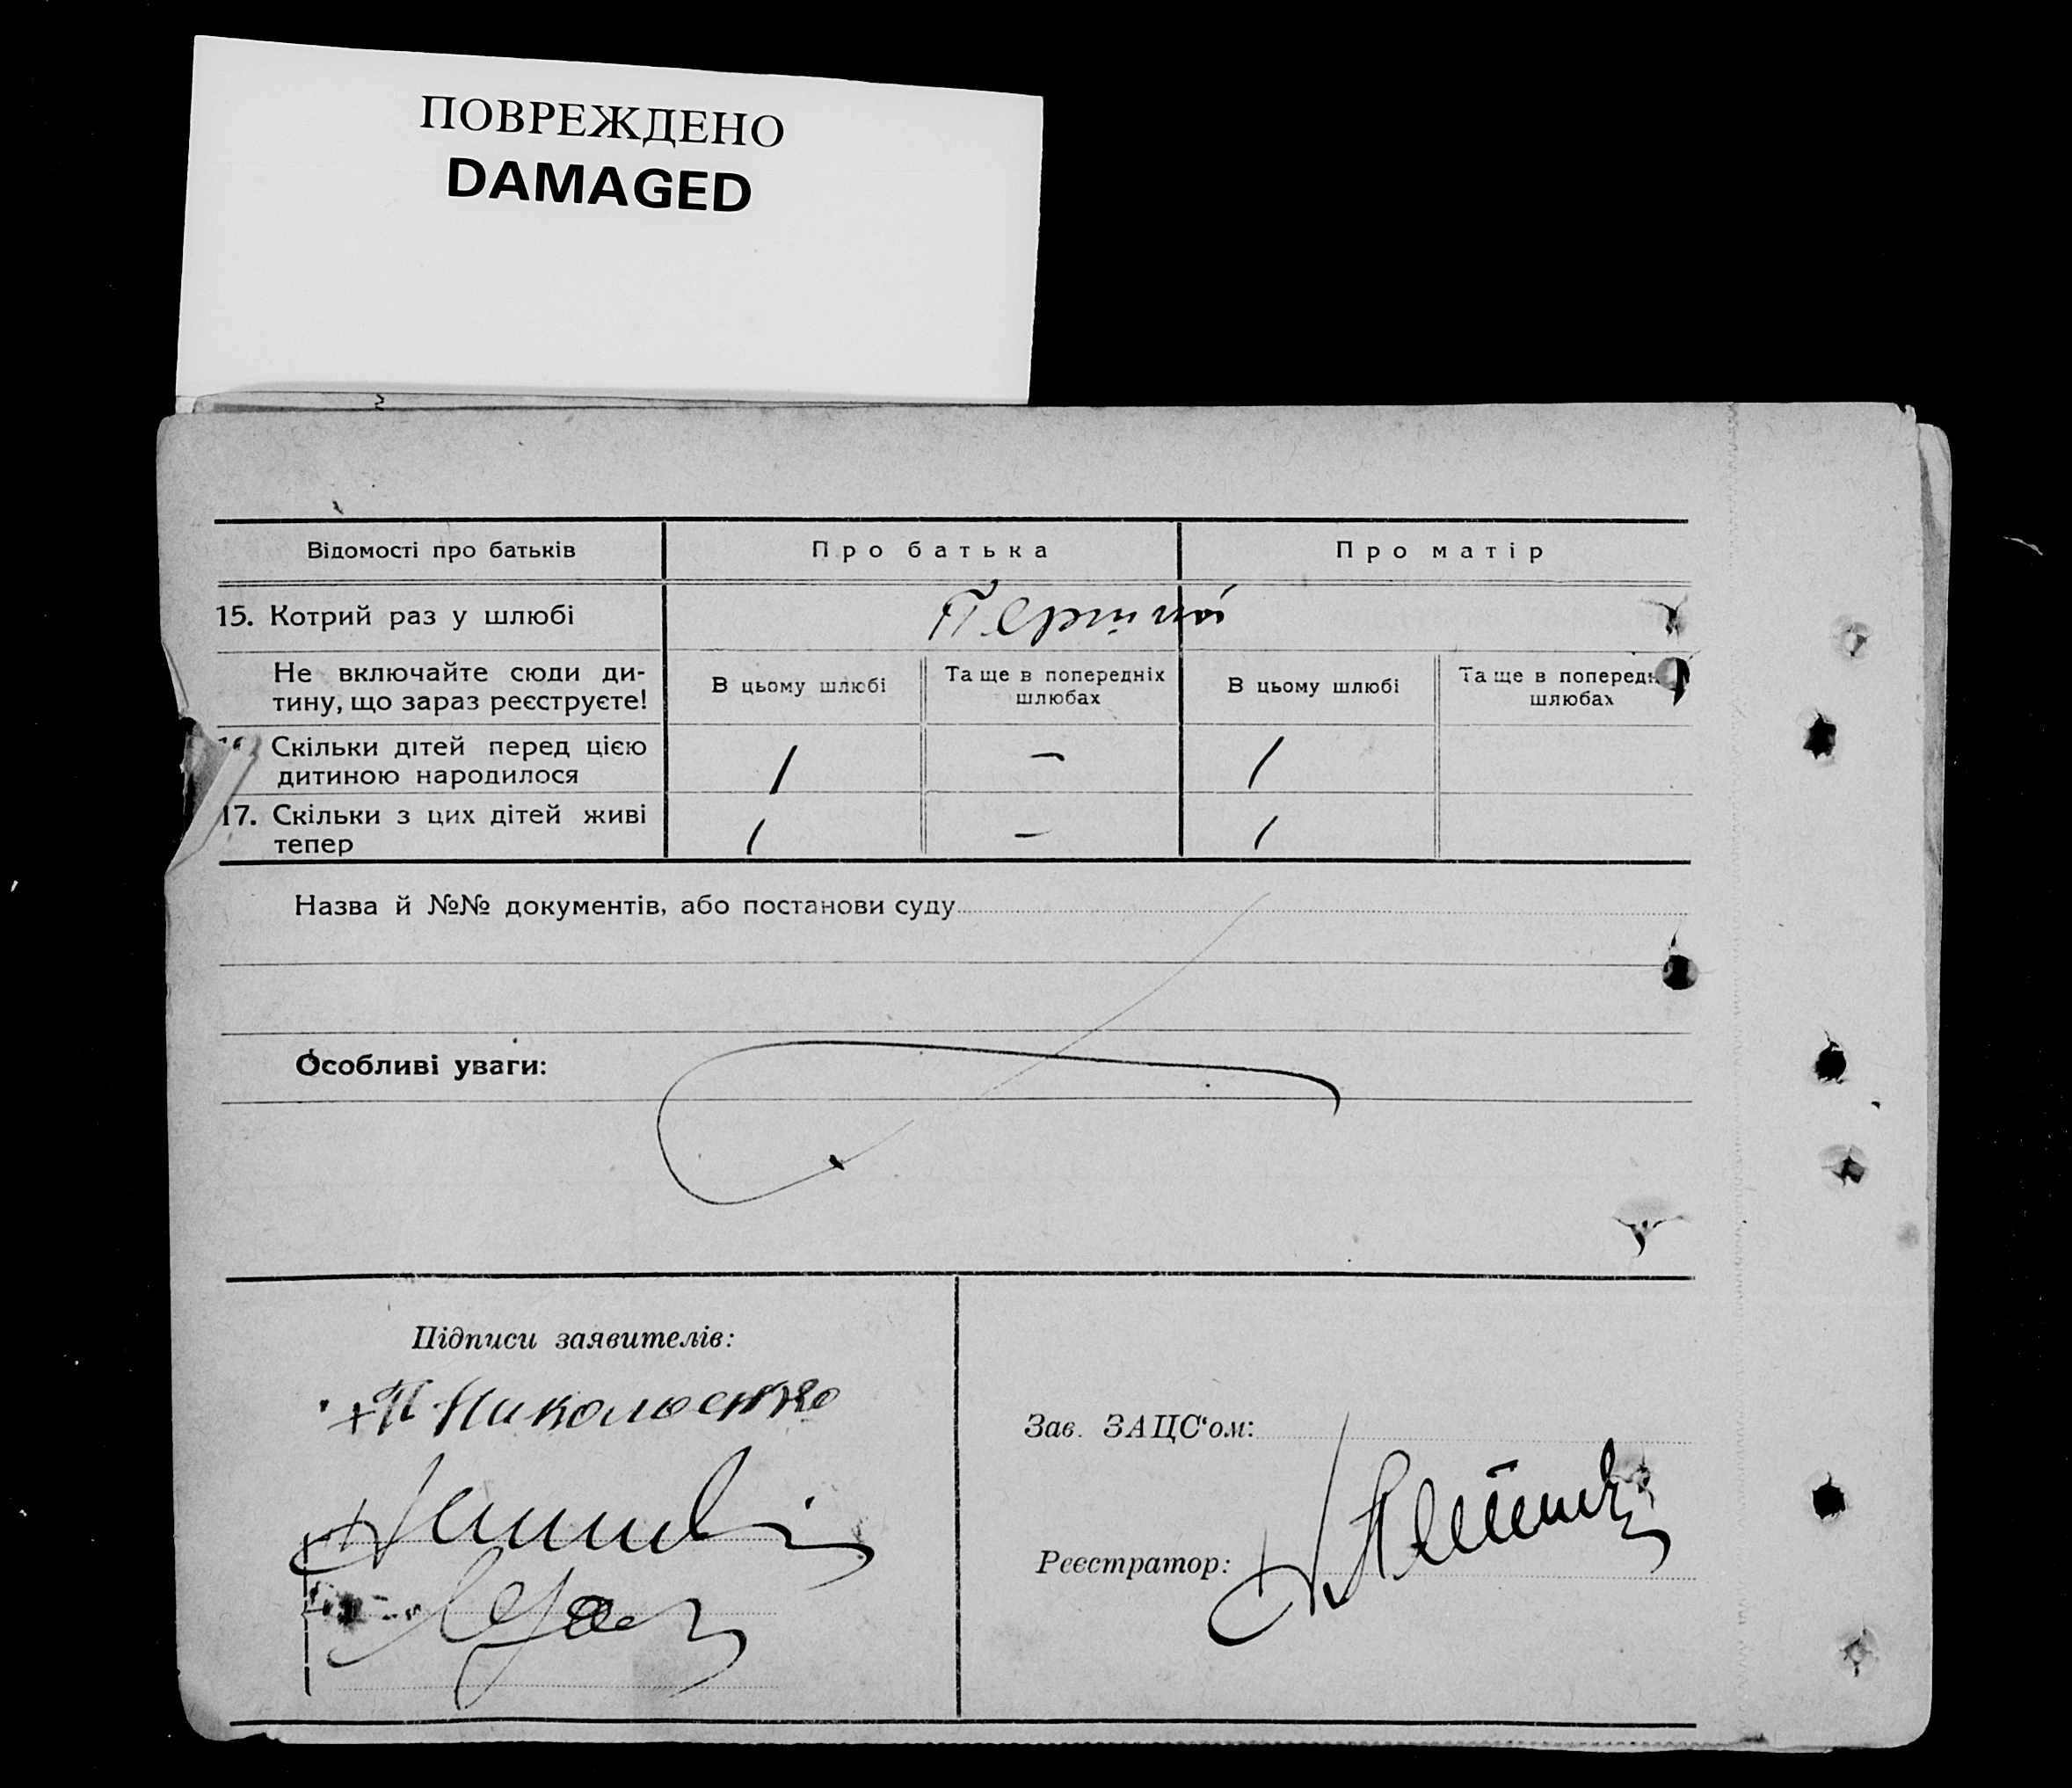 ПОВРЕЖДЕНО
DAMAGED
Відомості про батьків
Про батька
Про матір
15. Котрий раз у шлюбі
Перший
Не включайте сюди ди-
тину, що зараз реєструєте!
В цьому шлюбі
Та ще в попередніх
шлюбах
В цьому шлюбі
Та ще в попередн
шлюбах
Скільки дітей перед цією
дитиною народилося
1
–
1
17. Скільки з цих дітей живі
тепер
1
–
1
Назва й №№ документів, або постанови суду
Особливі уваги:
Підписи заявителів:
+П Николаенко
Зав. ЗАЦС'ом:
Реєстратор: